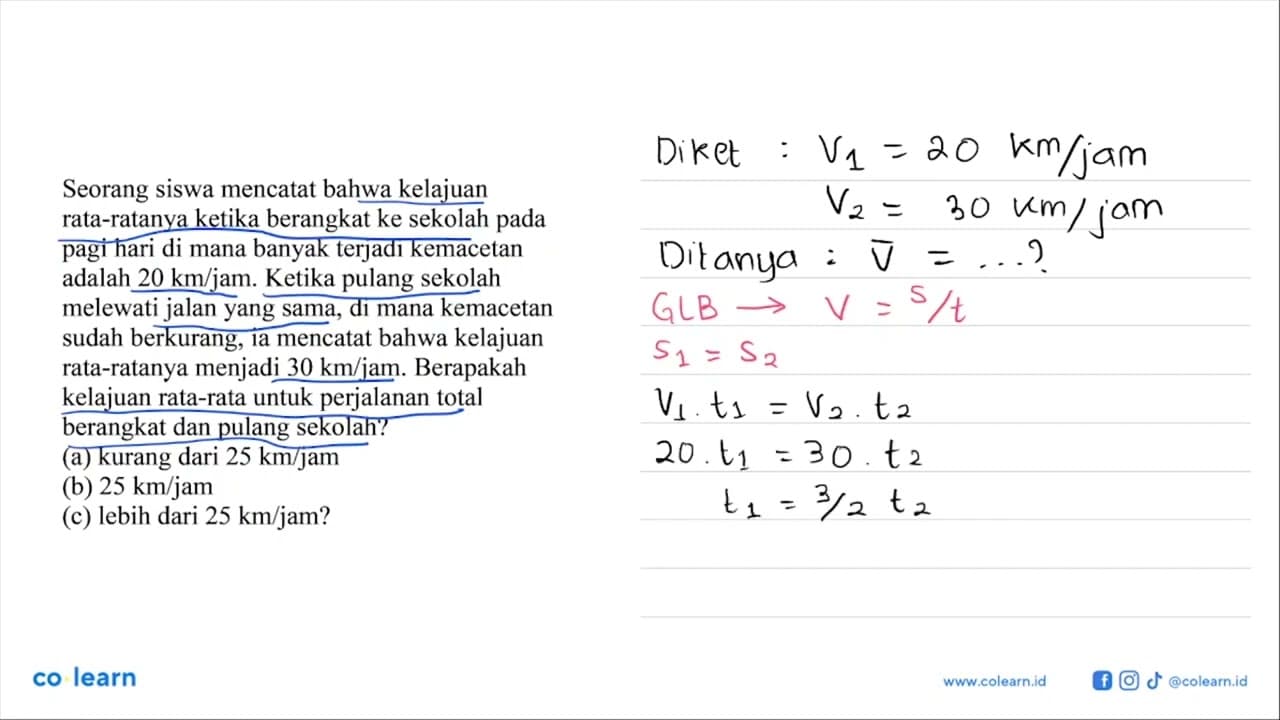 Seorang siswa mencatat bahwa kelajuan
rata-ratanya ketika berangkat ke sekolah pada
pagi hari di mana banyak terjadi kemacetan
adalah 20 km/jam. Ketika pulang sekolah
melewati jalan yang sama, di mana kemacetan
sudah berkurang, ia mencatat bahwa kelajuan
rata-ratanya menjadi 30 km/jam. Berapakah
kelajuan rata-rata untuk perjalanan total
berangkat dan pulang sekolah?
(a) kurang dari 25 km/jam
(b) 25 km/jam
(c) lebih dari 25 km/jam?
Diket : V1 = 20 km/jam
V2 = 30 km/jam
Ditanya : V̄ = ...?
GLB → V = s/t
S1 = S2
V1 . t1 = V2 . t2
20 . t1 = 30 . t2
t1 = 3/2 t2
co·learn
www.colearn.id
@colearn.id